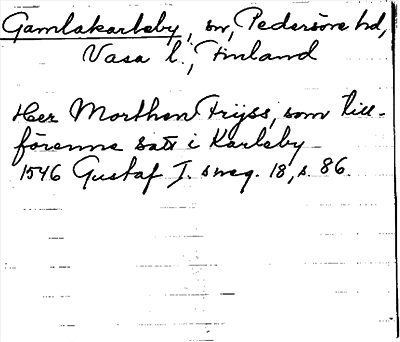 Gamlakarleby, sn, Pedersöre hd,
Vasa l., Finland
Her Morthen Fryss, som till-
förenne satt i Karleby
1546 Gustaf I. s reg. 18, s. 86.